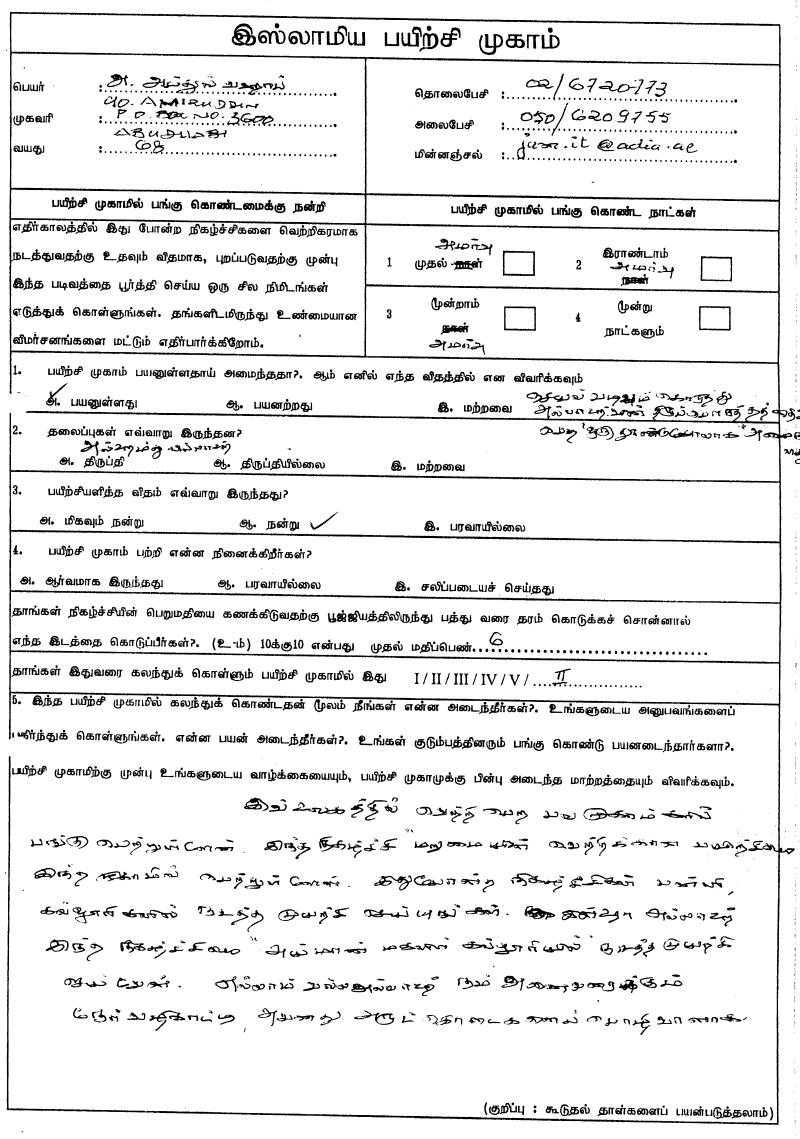 இஸ்லாமிய பயிற்சி முகாம்
பெயர் : அ. அப்துல் வஹாப்
C/O. AMIRUDDIN
முகவரி : P.O. BOX NO. 3600
ABUDHABI
வயது : 68
தொலைபேசி : 02/6720773
அலைபேசி : 050/6209755
மின்னஞ்சல் : @adia.ae
பயிற்சி முகாமில் பங்கு கொண்டமைக்கு நன்றி
எதிர்காலத்தில் இது போன்ற நிகழ்ச்சிகளை வெற்றிகரமாக
நடத்துவதற்கு உதவும் விதமாக, புறப்படுவதற்கு முன்பு
இந்த படிவத்தை பூர்த்தி செய்ய ஒரு சில நிமிடங்கள்
எடுத்துக் கொள்ளுங்கள். தங்களிடமிருந்து உண்மையான
விமர்சனங்களை மட்டும் எதிர்பார்க்கிறோம்.
பயிற்சி முகாமில் பங்கு கொண்ட நாட்கள்
1 முதல் நாள் அமர்வு
2 இராண்டாம் அமர்வு நாள்
3 மூன்றாம் நாள் அமர்வு
4 மூன்று நாட்களும்
1. பயிற்சி முகாம் பயனுள்ளதாய் அமைந்ததா?. ஆம் எனில் எந்த விதத்தில் என விவரிக்கவும்
அ. பயனுள்ளது ஆ. பயனற்றது இ. மற்றவை
2. தலைப்புகள் எவ்வாறு இருந்தன?
அ. திருப்தி ஆ. திருப்தியில்லை இ. மற்றவை
3. பயிற்சியளித்த விதம் எவ்வாறு இருந்தது?
அ. மிகவும் நன்று ஆ. நன்று ✓ இ. பரவாயில்லை
4. பயிற்சி முகாம் பற்றி என்ன நினைக்கிறீர்கள்?
அ. ஆர்வமாக இருந்தது ஆ. பரவாயில்லை இ. சலிப்படையச் செய்தது
தாங்கள் நிகழ்ச்சியின் பெறுமதியை கணக்கிடுவதற்கு பூஜ்ஜியத்திலிருந்து பத்து வரை தரம் கொடுக்கச் சொன்னால்
எந்த இடத்தை கொடுப்பீர்கள்?. (உ-ம்) 10க்கு10 என்பது முதல் மதிப்பெண் 6
தாங்கள் இதுவரை கலந்துக் கொள்ளும் பயிற்சி முகாமில் இது I / II / III / IV / V / II
5. இந்த பயிற்சி முகாமில் கலந்துக் கொண்டதன் மூலம் நீங்கள் என்ன அடைந்தீர்கள்?. உங்களுடைய அனுபவங்களைப்
பகிர்ந்துக் கொள்ளுங்கள். என்ன பயன் அடைந்தீர்கள்?. உங்கள் குடும்பத்தினரும் பங்கு கொண்டு பயனடைந்தார்களா?.
பயிற்சி முகாமிற்கு முன்பு உங்களுடைய வாழ்க்கையையும், பயிற்சி முகாமுக்கு பின்பு அடைந்த மாற்றத்தையும் விவரிக்கவும்.
இவ் உலகத்தில் வெற்றி பெற பல
பங்கு பெற்றுள்ளேன். இந்த நிகழ்ச்சி "மறுமையின் வெற்றிக்கான
இந்த பெற்றுள்ளேன். இதுபோன்ற நிகழ்ச்சிகள் பள்ளி,
கல்லூரிகளில் நடத்த முயற்சி இன்ஷா அல்லாஹ்
இந்த நிகழ்ச்சியை மகளிர் கல்லூரியில்" நடத்த முயற்சி
செய்வேன். எல்லாம் வல்ல அல்லாஹ் நம் அனைவரையும்
நேர் வழிகாட்டி அவனது அருட் கொடைகளை பொழிவானாக
(குறிப்பு : கூடுதல் தாள்களைப் பயன்படுத்தலாம்)